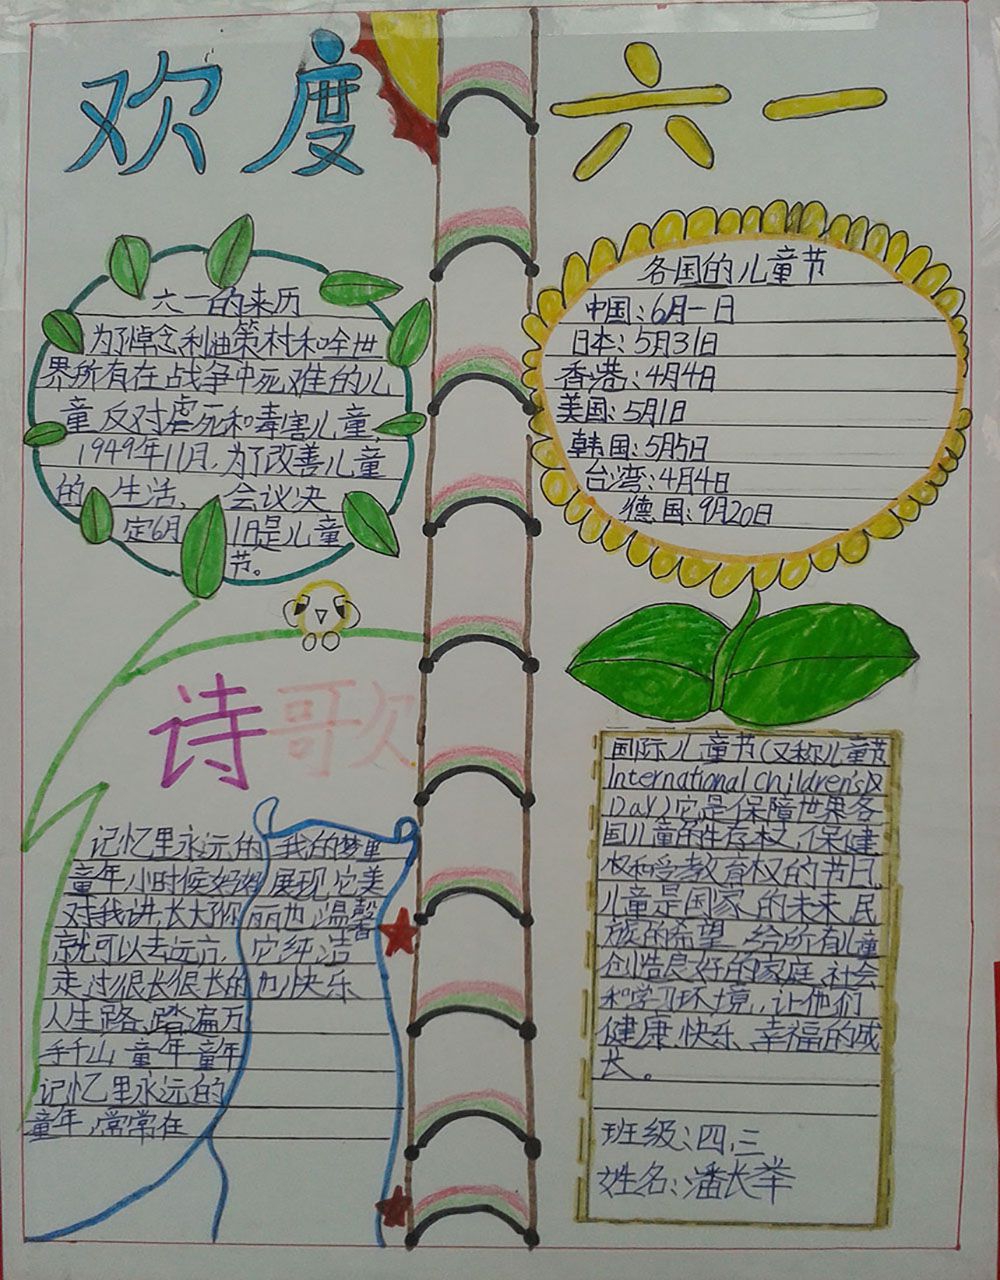 欢度
六一
六一的来历
为了悼念利迪策村和全世
界所有在战争中死难的儿
童,反对虐死和毒害儿童,
1949年11月,为了改善儿童
的生活,会议决
定6月1日是儿童
节。
各国的儿童节
中国:6月一日
日本:5月31日
香港:4月4日
美国:5月1日
韩国:5月5日
台湾:4月4日
德国:9月20日
诗歌
记忆里永远的
童年,小时候妈妈
对我讲,长大你
就可以去远方,
走过很长很长的
人生路,踏遍万
千山,童年童年
记忆里永远的
童年,常常在
我的梦里
展现,它美
丽也温馨
它纯洁
也快乐
国际儿童节(又称儿童节
International Children's
Day)它是保障世界各
国儿童的生存权,保健
权和受教育权的节日。
儿童是国家的未来,民
族的希望,给所有儿童
创造良好的家庭、社会
和学习环境,让他们
健康、快乐、幸福的成
长。
班级:四.三
姓名:潘长举